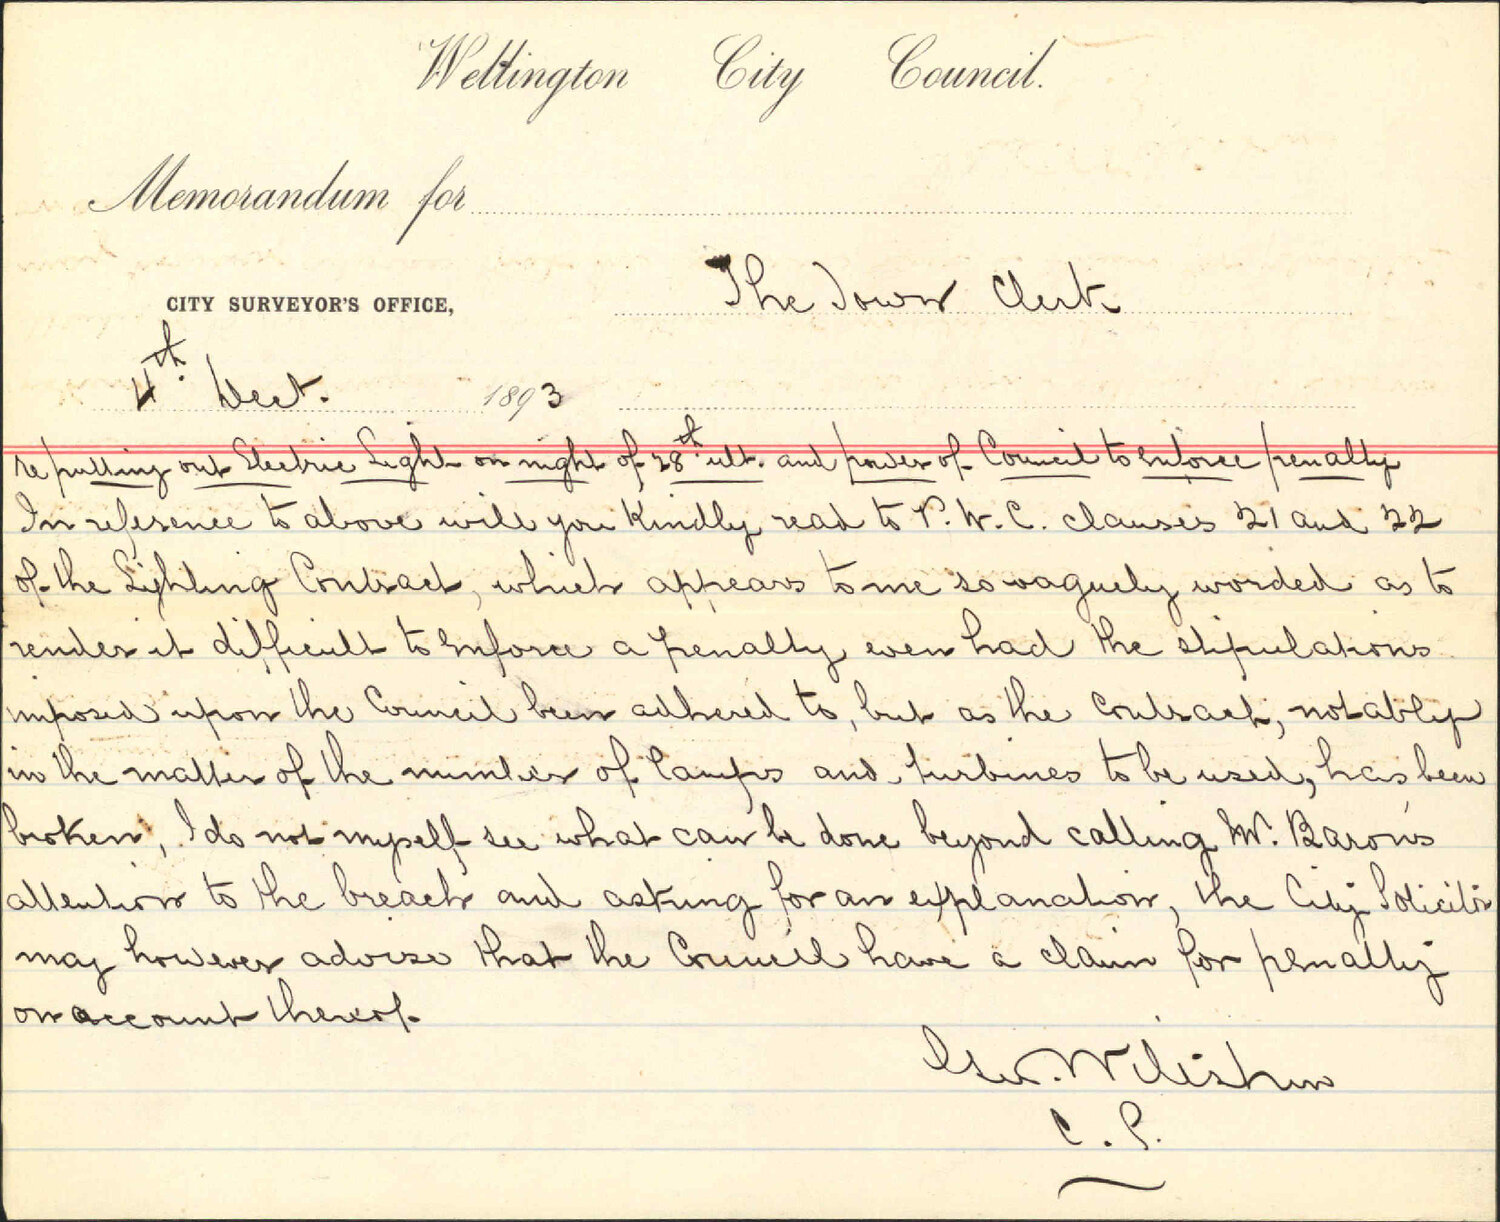 Wellington City Council.
Memorandum for
The Town Clerk
CITY SURVEYOR'S OFFICE,
4th Dect. 1893
re putting out Electric Light on night of 28th ult. and power of Council to enforce penalty
In reference to above will you Kindly read to P.W.C. clauses 21 and 22
of the Lighting Contract, which appears to me so vaguely worded as to
render it difficult to enforce a penalty even had the stipulations
imposed upon the Council been adhered to, but as the contract, notably
in the matter of the number of lamps and turbines to be used, has been
broken, I do not myself see what can be done beyond calling Mr. Baron's
attention to the breach and asking for an explanation, the City Solicitor
may however advise that the Council have a claim for penalty
on account thereof.
Geo. Wiltshire
C.S.